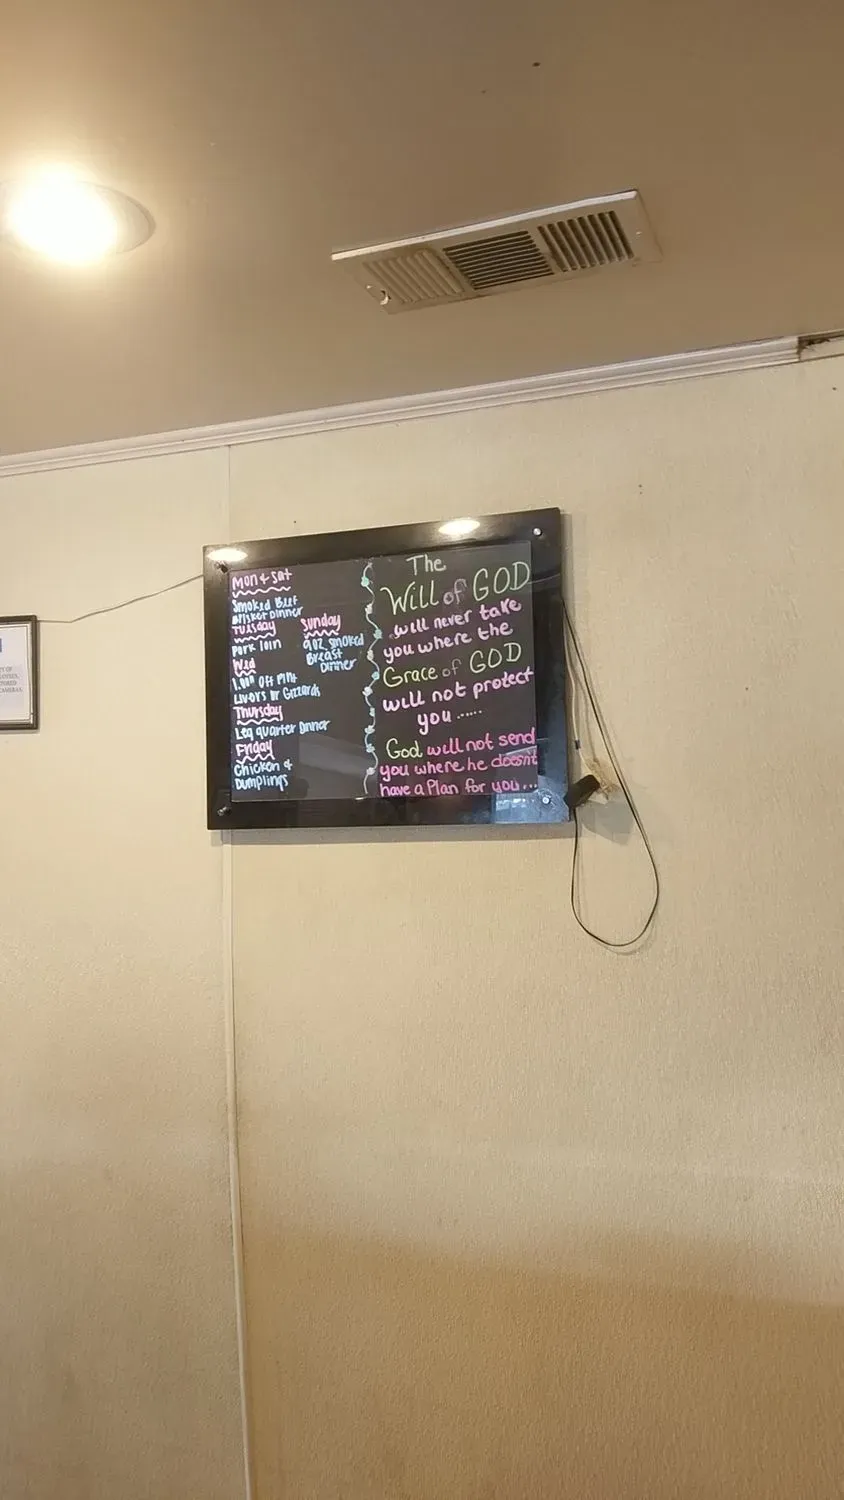 Mon & Sat
Smoked Beef
Brisket Dinner
Tuesday
Pork loin
Wed
1.00 Off Pint
Livers or Gizzards
Thursday
Leg quarter Dinner
Friday
Chicken &
Dumplings
Sunday
9oz smoked
Breast
Dinner
The
Will of GOD
will never take
you where the
Grace of GOD
will not protect
you ......
God will not send
you where he doesn't
have a Plan for you...
TY OF
PLOYEES,
TORED
CAMERAS.